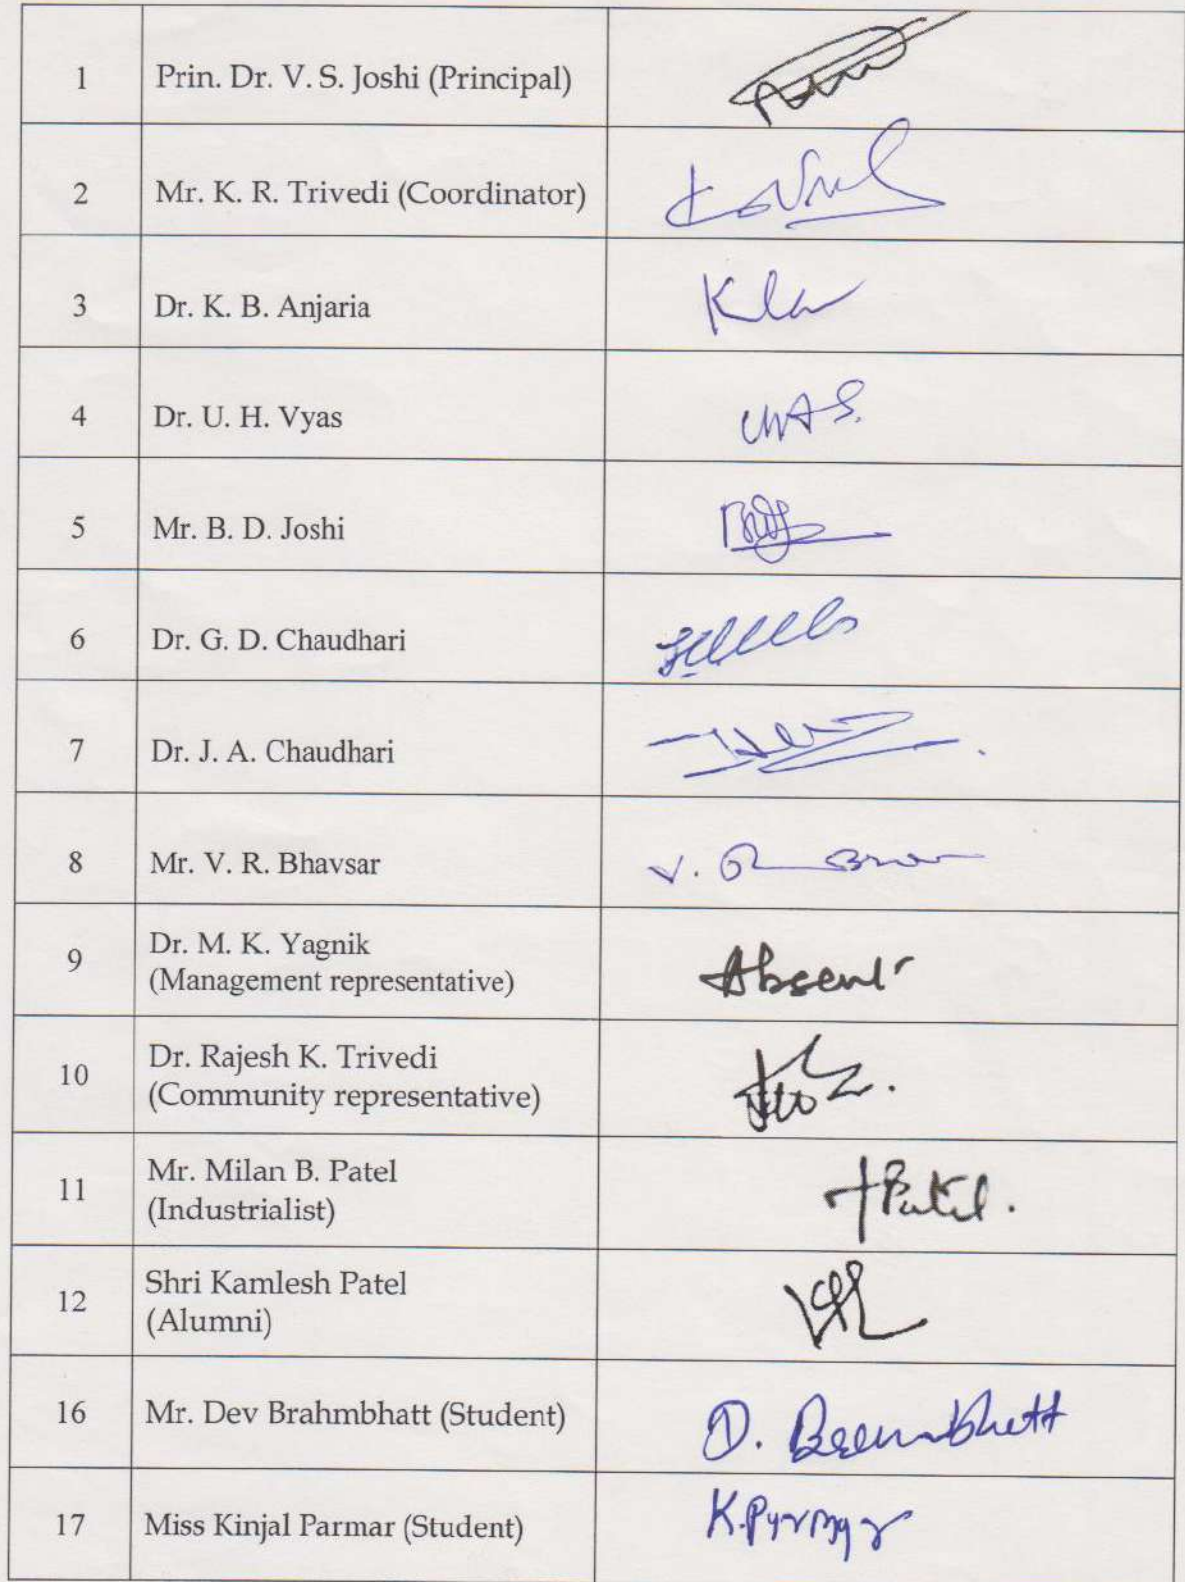 1 Prin. Dr. V. S. Joshi (Principal)
2 Mr. K. R. Trivedi (Coordinator)
3 Dr. K. B. Anjaria
4 Dr. U. H. Vyas
5 Mr. B. D. Joshi
6 Dr. G. D. Chaudhari
7 Dr. J. A. Chaudhari
8 Mr. V. R. Bhavsar
9 Dr. M. K. Yagnik
(Management representative)
Absent
10 Dr. Rajesh K. Trivedi
(Community representative)
11 Mr. Milan B. Patel
(Industrialist)
12 Shri Kamlesh Patel
(Alumni)
16 Mr. Dev Brahmbhatt (Student)
17 Miss Kinjal Parmar (Student)